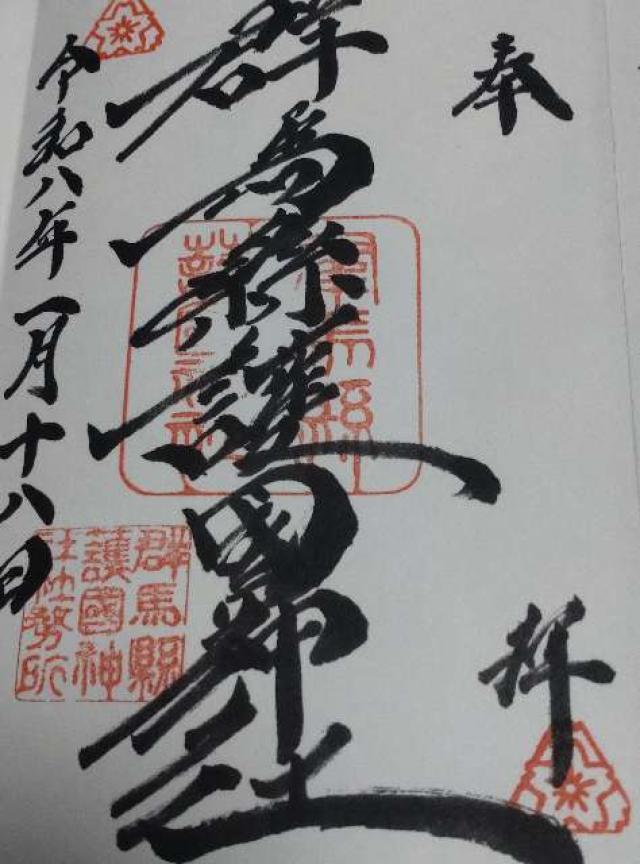 奉
拝
群馬縣護國神社
令和八年一月十八日
群馬縣
護國神
社社務所
群馬縣
護國神社